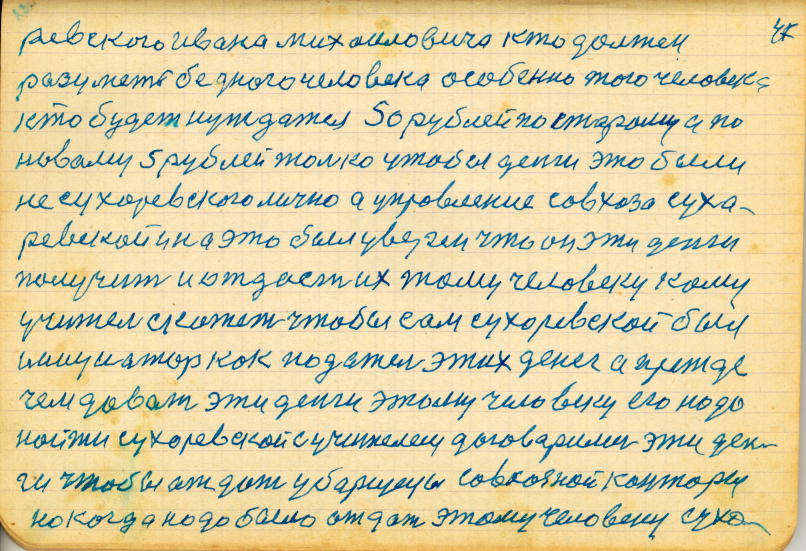 47
ревского ивана михоиловича кто должен
разуметь бедного человека особенно того человека
кто будет нуждатся 50 рублей по старому а по
новаму 5 рублей толко чтобы денги это были
не сухоревского лично а упровление совхоза суха-
ревской и на это был уверен что он эти денги
получит и отдаст их тому человеку кому
учител скожет чтобы сам сухоревской был
как подател этих денег а прежде
чем доват эти денги этому человеку его нодо
нойти сухоревской с учителем договарилис эти ден-
ги чтобы атдат уборщецы совхозной канторы
но когда нодо было атдат этому человеку сухо-